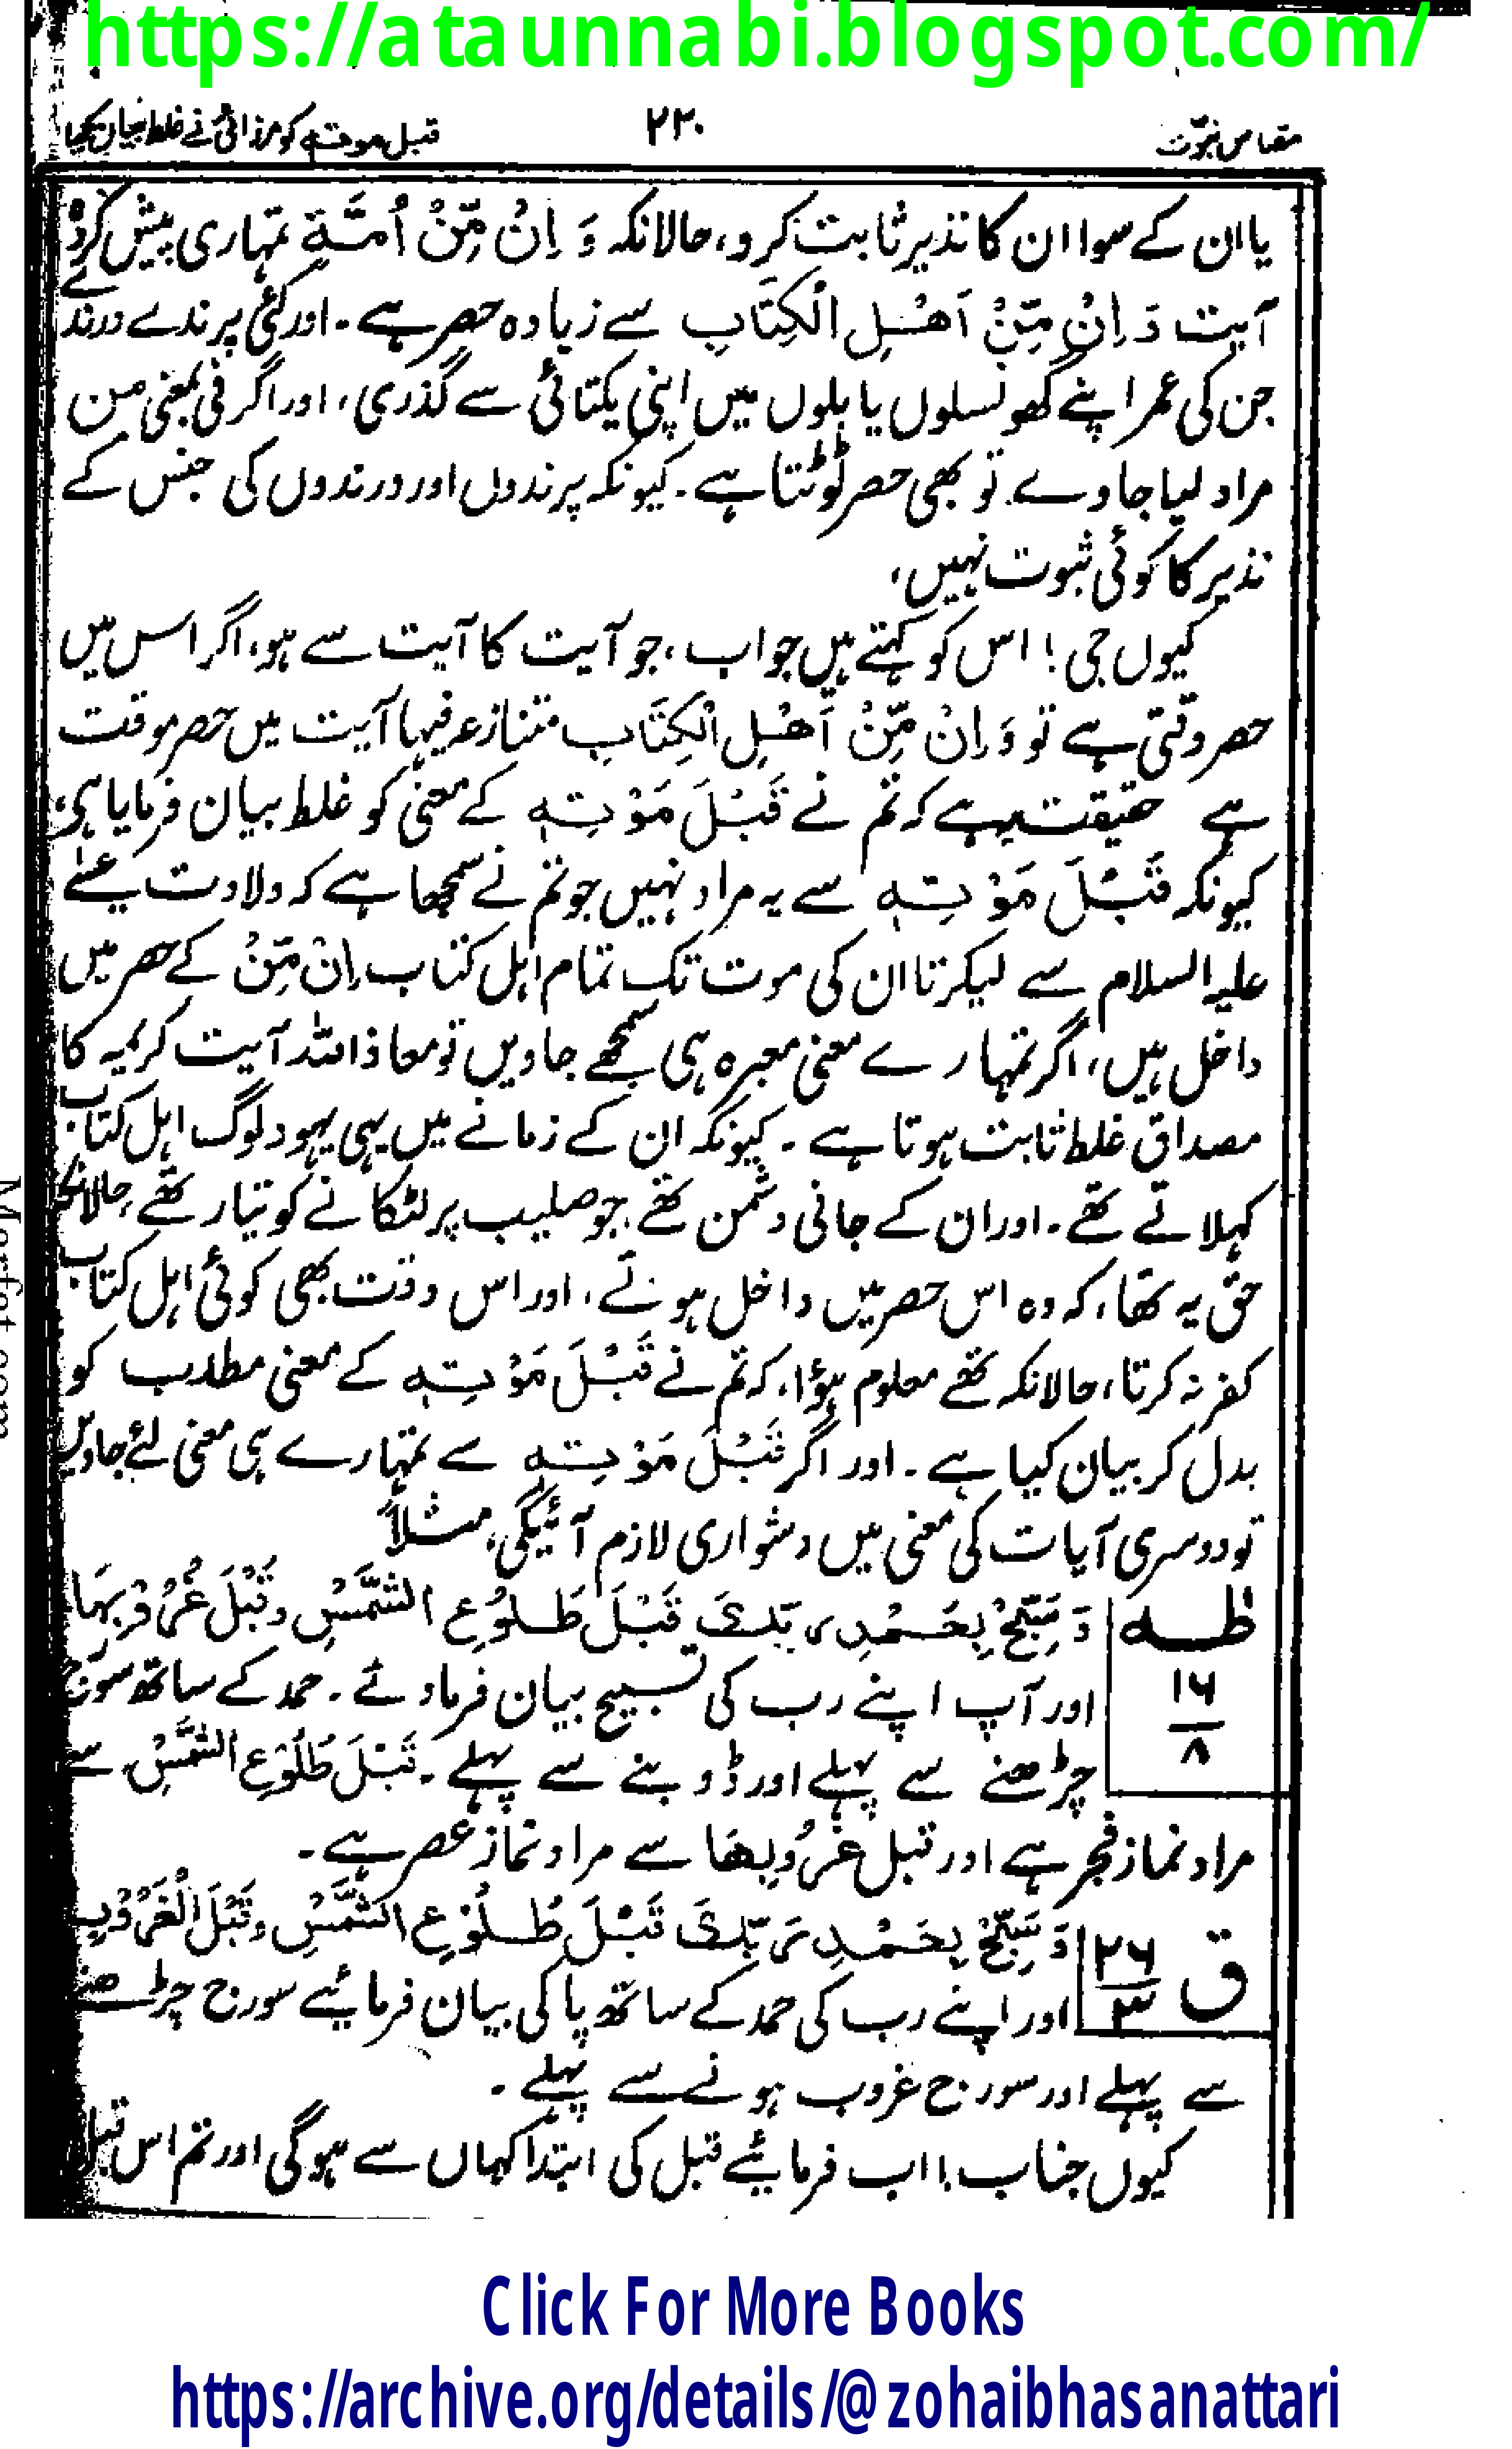 https://ataunnabi.blogspot.com/
مقیاس نبوّت
۲۳۰
قبل موتہٖ کو مرزائی نے غلط بیان کیا
یا ان کے سوا ان کا نذیر ثابت کرو، حالانکہ وَ اِنْ مِّنْ اُمَّۃٍ تمہاری پیش کردہ
آیت وَ اِنْ مِّنْ اَھْلِ الْکِتَابِ سے زیادہ حصر ہے۔ اور کئی پرندے درندے
جن کی عمر اپنے گھونسلوں یا بلوں میں اپنی یکتائی سے گذری، اور اگر فی بمعنی من
مراد لیا جاوے تو بھی حصر ٹوٹتا ہے۔ کیونکہ پرندوں اور درندوں کی جنس کے
نذیر کا کوئی ثبوت نہیں،
کیوں جی! اس کو کہتے ہیں جواب، جو آیت کا آیت سے ہو، اگر اس میں
حصر وقتی ہے تو وَ اِنْ مِّنْ اَھْلِ الْکِتَابِ متنازعہ فیہا آیت میں حصر موقت
ہے حقیقت یہ ہے کہ تم نے قَبْلَ مَوْتِہٖ کے معنی کو غلط بیان فرمایا ہی،
کیونکہ قَبْلَ مَوْتِہٖ سے یہ مراد نہیں جو تم نے سمجھا ہے کہ ولادت عیسٰے
علیہ السلام سے لیکر تا ان کی موت تک تمام اہل کتاب اِنْ مِّنْ کے حصر میں
داخل ہیں، اگر تمہارے معنی معبرہ ہی سمجھے جاویں تو معاذ اللہ آیت کریمہ کا
مصداق غلط ثابت ہوتا ہے۔ کیونکہ ان کے زمانے میں یہی یہود لوگ اہل کتاب
کہلاتے تھے۔ اور ان کے جانی دشمن تھے، جو صلیب پر لٹکانے کو تیار تھے، حالانکہ
حق یہ تھا، کہ وہ اس حصر میں داخل ہوتے، اور اس وقت بھی کوئی اہل کتاب
کفر نہ کرتا، حالانکہ تھے معلوم ہؤا، کہ تم نے قَبْلَ مَوْتِہٖ کے معنی مطلب کو
بدل کر بیان کیا ہے۔ اور اگر قَبْلَ مَوْتِہٖ سے تمہارے ہی معنی لئے جاویں
تو دوسری آیات کی معنی میں دشواری لازم آئیگی، مثلاً
طٰہٰ ۱۶/۸ وَ سَبِّحْ بِحَمْدِ رَبِّکَ قَبْلَ طُلُوْعِ الشَّمْسِ وَ قَبْلَ غُرُوْبِہَا
اور آپ اپنے رب کی تسبیح بیان فرمادئے۔ حمد کے ساتھ سورج
چڑھنے سے پہلے اور ڈوبنے سے پہلے۔ قَبْلَ طُلُوْعِ الشَّمْسِ سے
مراد نماز فجر ہے اور قبل غُرُوْبِھَا سے مراد نماز عصر ہے۔
ق ۲۶/۳ وَ سَبِّحْ بِحَمْدِ رَبِّکَ قَبْلَ طُلُوْعِ الشَّمْسِ وَ قَبْلَ الْغُرُوْبِ
اور اپنے رب کی حمد کے ساتھ پاکی بیان فرمائیے سورج چڑھنے
سے پہلے اور سورج غروب ہونے سے پہلے۔
کیوں جناب! اب فرمائیے قبل کی ابتداً کہاں سے ہوگی اور تم اس قبل
Click For More Books
https://archive.org/details/@zohaibhasanattari